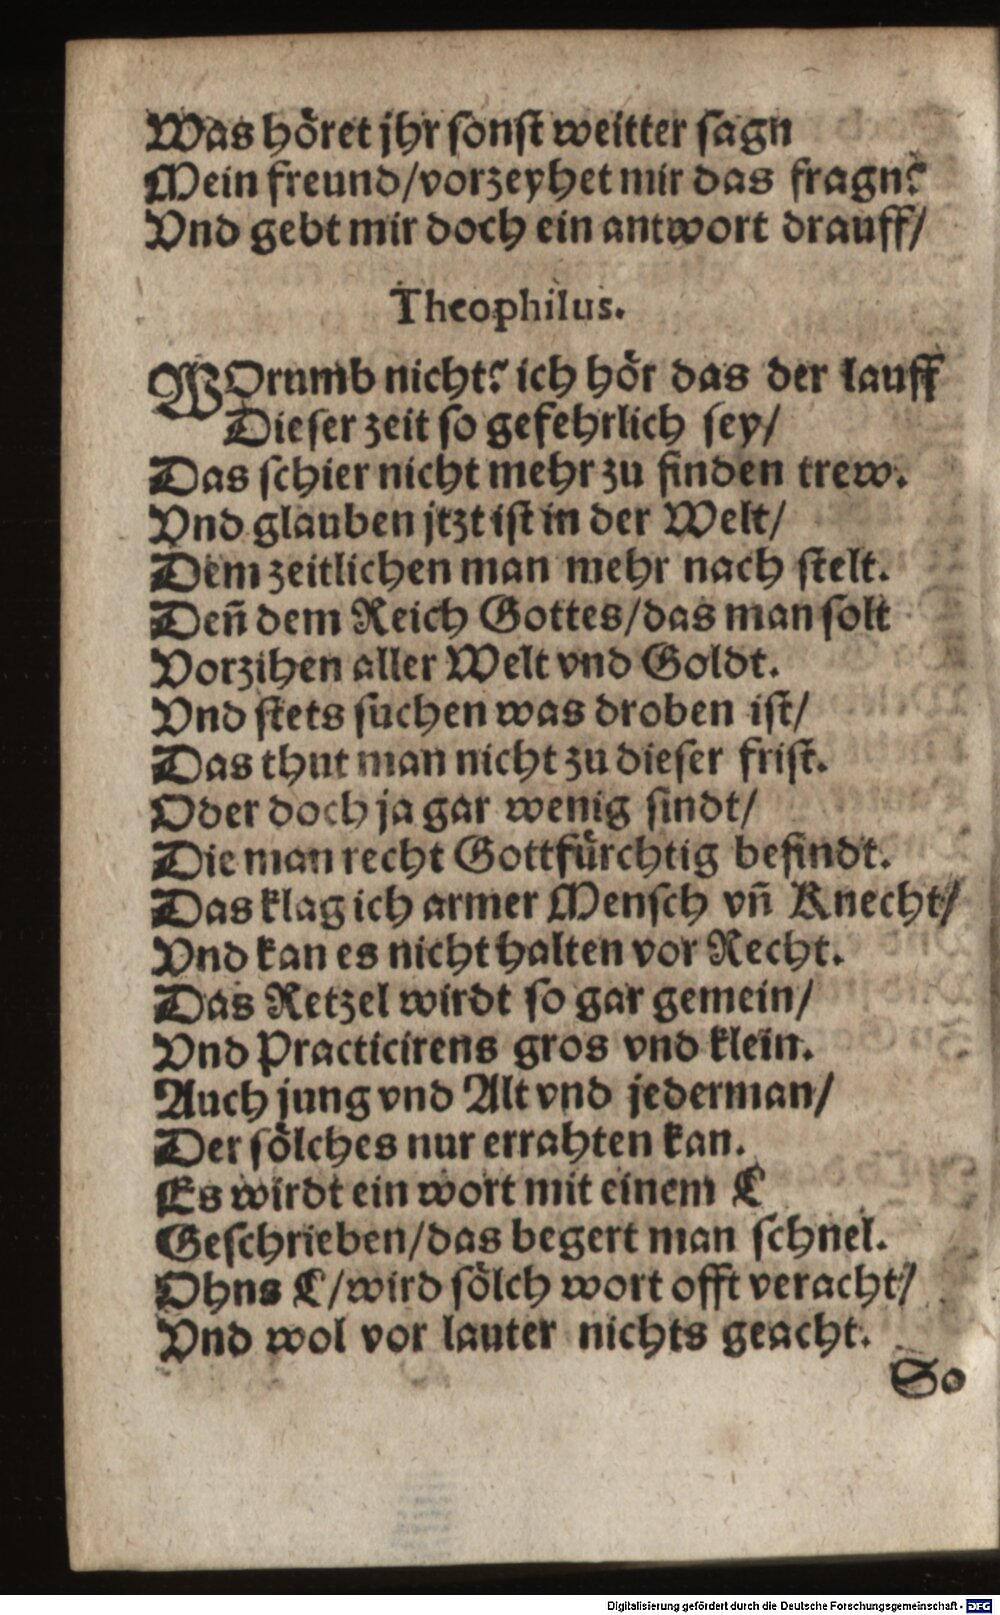 Was höret jhr sonst weitter sagn
Mein freund/vorzeyhet mir das fragn?
Vnd gebt mir doch ein antwort drauff/
Theophilus.
WOrumb nicht? ich hör das der lauff
Dieser zeit so gefehrlich sey/
Das schier nicht mehr zu finden trew.
Vnd glauben jtzt ist in der Welt/
Dem zeitlichen man mehr nach stelt.
Deñ dem Reich Gottes/das man solt
Vorzihen aller Welt vnd Goldt.
Vnd stets suchen was droben ist/
Das thut man nicht zu dieser frist.
Oder doch ja gar wenig sindt/
Die man recht Gottfürchtig befindt.
Das klag ich armer Mensch vñ Knecht/
Vnd kan es nicht halten vor Recht.
Das Retzel wirdt so gar gemein/
Vnd Practicirens gros vnd klein.
Auch jung vnd Alt vnd jederman/
Der sölches nur errahten kan.
Es wirdt ein wort mit einem L
Geschrieben/das begert man schnel.
Ohns L/wird sölch wort offt veracht/
Vnd wol vor lauter nichts geacht.
So
Digitalisierung gefördert durch die Deutsche Forschungsgemeinschaft - DFG